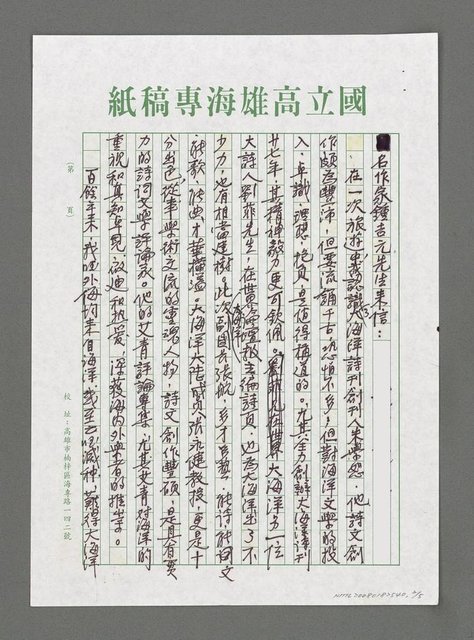 國立高雄海專稿紙
名作家鍾吉元先生來信:
在一次旅遊中我認識大海洋詩刊創刊人朱學恕,他詩文創
作頗為豐沛,但要流鋪千古恐怕不多,但對海洋文學的投
入、卓識、理想、抱負,是值得稱道的。尤其全力創辦大海洋詩刊
廿七年,其精神毅力更可欽佩。大海洋另一位
大詩人劉菲先生,在世界論壇報主編詩頁,也為大海洋出了不
少力,也有相當建樹。此次張航,多才多藝,能詩、能詞文
能歌、能典、才華橫溢。大海洋大陸成員張永健教授,更是十
分出色,從事學術交流的靈魂人物,詩文創作豐碩,是具有實
力的詩詞文學評論家。他的艾青評論專集,尤其艾青對海洋的
重視和真知卓見,啟迪和熱愛,深獲海內外學者的推崇。
百餘年來,我國外侮詞來自海洋,難得大海洋
(第 頁)
校址:高雄市楠梓區海專路一四二號
NMTL20080182540, 2/5